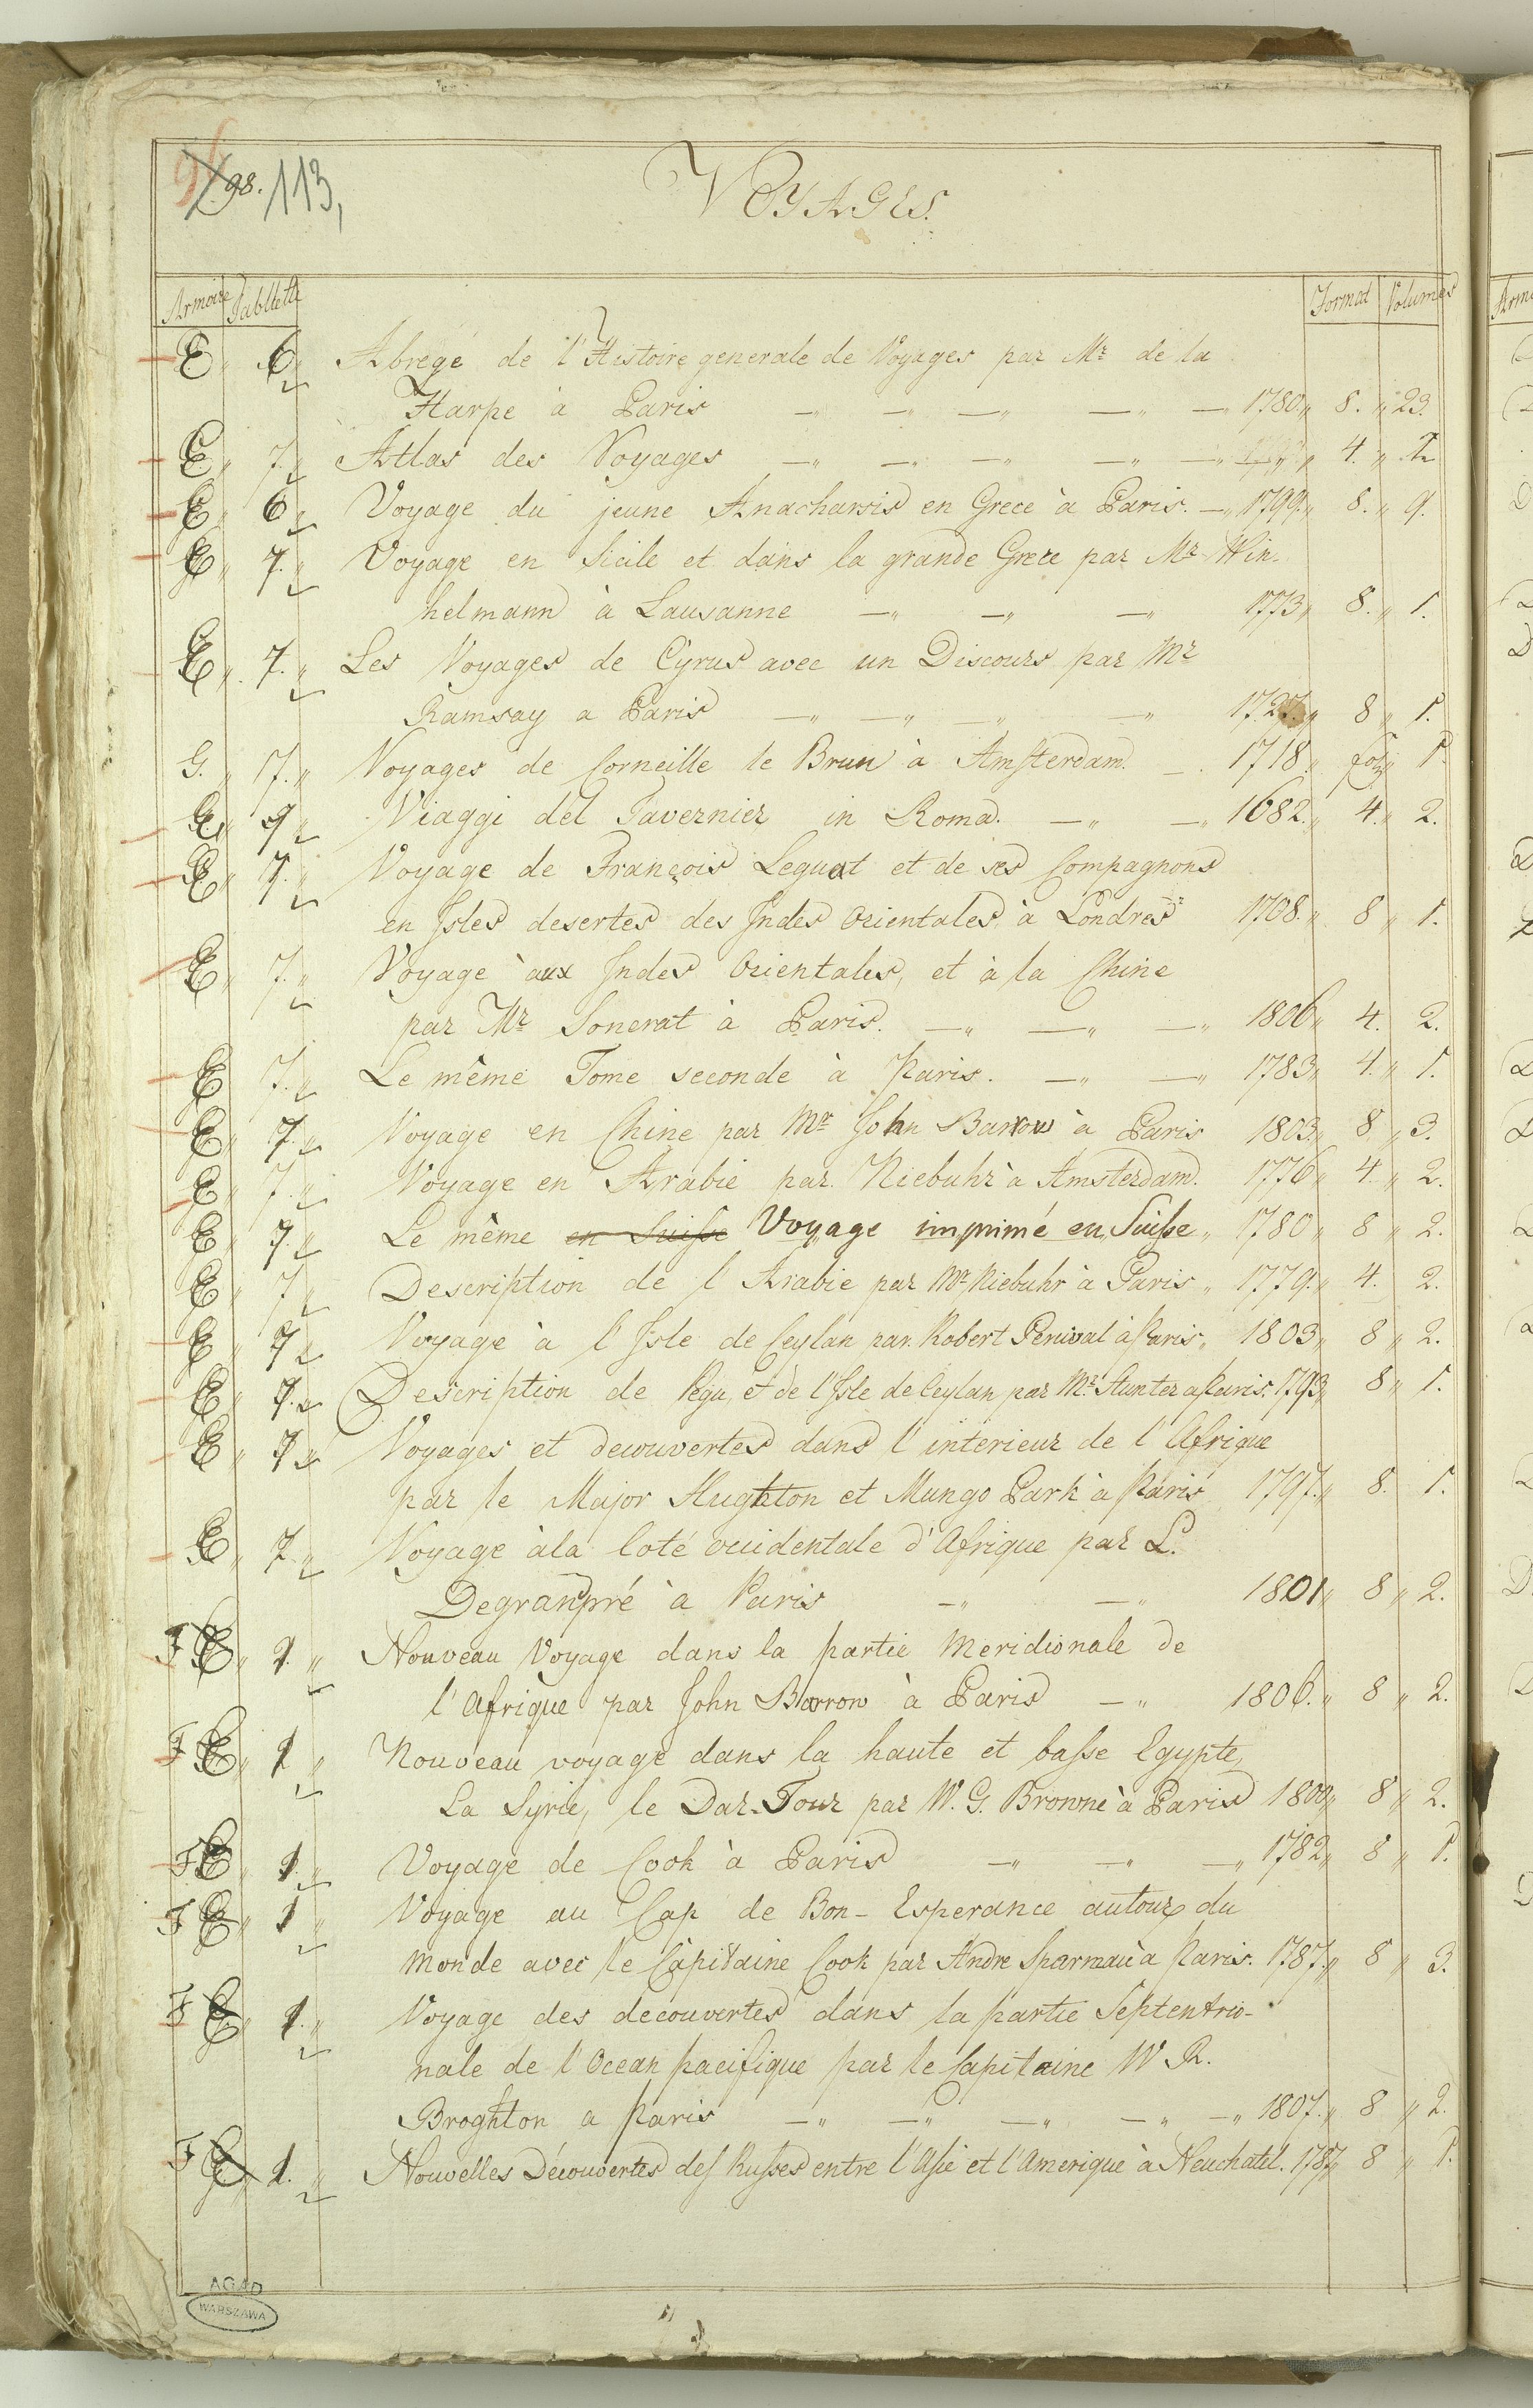 98. 113,
VOYAGES.
Armoire Tablette Format Volumes
E 6 Abregé de l'Histoire generale de Voyages par Mr de la
Harpe à Paris 1780 8. 23.
E 7. Atlas des Voyages 4.
E 6 Voyage du jeune Anacharsis en Grece à Paris. 1799. 8. 9.
E 7. Voyage en Sicile et dans la grande Grece par Mr Win-
helmann à Lausanne 1773 8. 1.
E 7. Les Voyages de Cyrus avec un Discours par Mr
Ramsay a Paris 1727. 8 1.
G. 17. Voyages de Corneille le Brun à Amsterdam. 1718. fol 1
9 Viaggi del Tavernier in Roma. 1682. 4. 2.
E 7. Voyage de François Leguat et de ses Compagnons
en Isles desertes des Indes Orientales, à Londres 1708. 8 1.
E 7. Voyage aux Indes Orientales, et à la Chine
par Mr Sonerat à Paris. 1806 4. 2.
E 7. Le même Tome seconde à Paris. 1783 4. 1.
E 7. Voyage en Chine par Mr John Barrow à Paris 1803. 8. 3.
E 7. Voyage en Arabie par Niebuhr à Amsterdam. 1776 4. 2.
E 7. Le même en Suisse Voyage imprimé en Suisse 1780 8 2.
E 7 Description de l Arabie par Mr Niebuhr à Paris 1779. 4. 2.
E 7 Voyage à l Isle de Ceylan par Robert Percival à Paris 1803 8 2.
E 7. Description de Pegu et de l'Isle de Ceylan par Mr Hunter a Paris. 1793 8 1.
E 7 Voyages et decouvertes dans l'interieur de l'Afrique
par le Major Hughton et Mungo Park à Paris 1797. 8. 1.
E 7. Voyage àla Coté occidentale d'Afrique par L.
Degranpré à Paris 1801 8 2.
F E 1. Nouveau Voyage dans la partie Meridionale de
l'Afrique par John Barrow à Paris 1806. 8 2.
F E 1 Nouveau voyage dans la haute et basse Egypte,
La Syrie, le Dar-Four par W. G. Browne à Paris 1800 8 2.
F E 1. Voyage de Cook à Paris 1782 8 1.
F E 1 Voyage au Cap de Bon-Esperance autour du
Monde avec le Capitaine Cook par Andre Sparmau à Paris. 1787. 8 3.
F E 1. Voyage des decouvertes dans la partie Septentrio-
nale de l'Ocean pacifique par le Capitaine W R.
Broghton a Paris 1807. 8 2.
F E 1. Nouvelles Découvertes des Russes entre l'Asie et l'Amerique à Neuchatel. 8 1.
AGAD
WARSZAWA